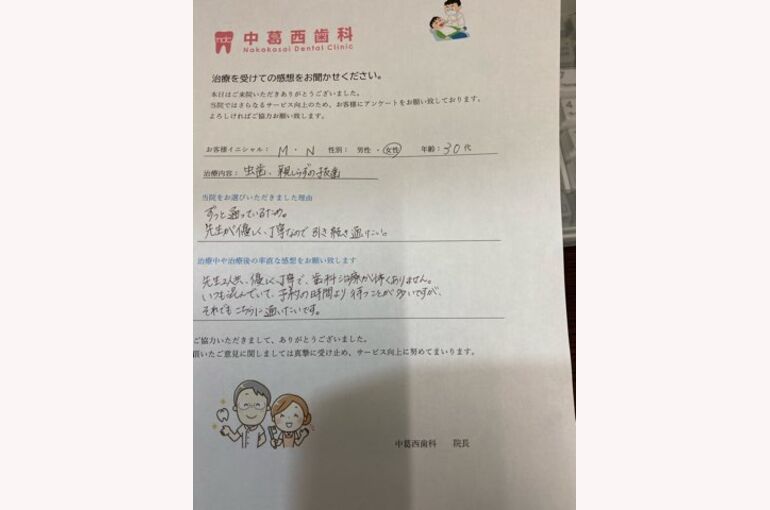 中葛西歯科
Nakakasai Dental Clinic
治療を受けての感想をお聞かせください。
本日はご来院いただきありがとうございました。
当院ではさらなるサービス向上のため、お客様にアンケートをお願い致しております。
よろしければご協力お願い致します。
お客様イニシャル： M・N 性別： 男性 ・ 女性 年齢：30代
治療内容： 虫歯、親しらずの抜歯
当院をお選びいただきました理由
ずっと通っているため。
先生が優しく、丁寧なので引き続き通いたい。
治療中や治療後の率直な感想をお願い致します
先生2人共、優しく、丁寧で、歯科治療が怖くありません。
いつも混んでいて、予約の時間より待つことが多いですが、
それでもこちらに通いたいです。
ご協力いただきまして、ありがとうございました。
頂いたご意見に関しましては真摯に受け止め、サービス向上に努めてまいります。
中葛西歯科 院長